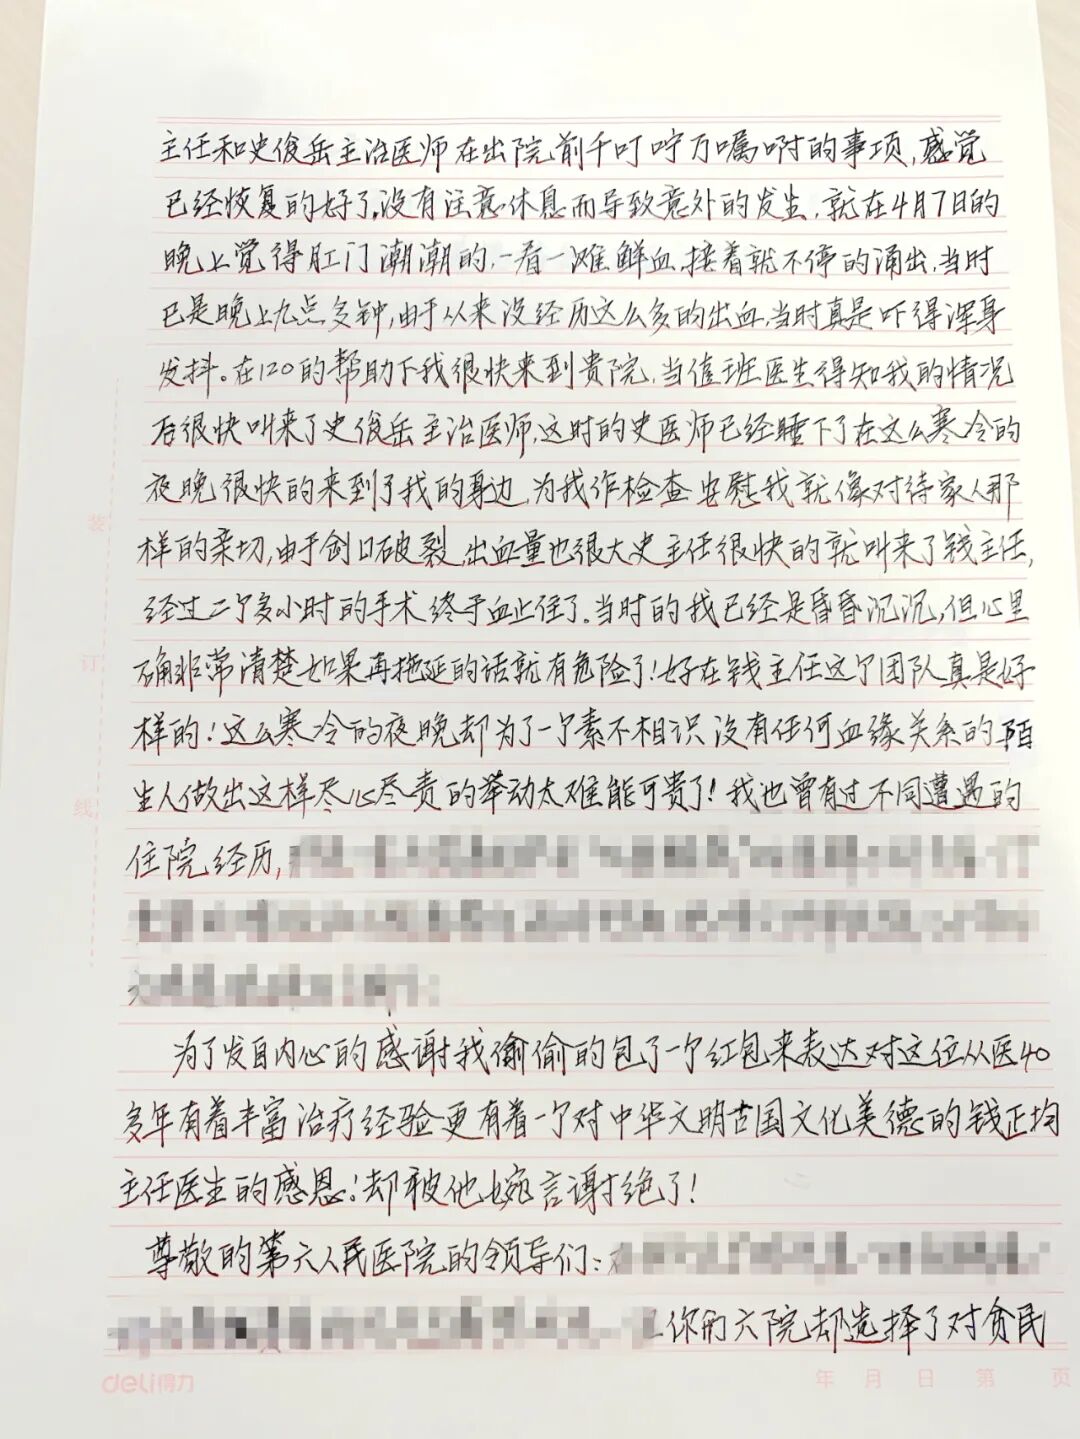 主任和史俊岳主治医师在出院前千叮咛万嘱咐的事项,感觉
已经恢复的好了。没有注意休息而导致意外的发生,就在4月7日的
晚上觉得肛门潮潮的,一看一滩鲜血,接着就不停的涌出,当时
已是晚上九点多钟,由于从来没经历这么多的出血,当时真是吓得浑身
发抖。在120的帮助下我很快来到贵院,当值班医生得知我的情况
后很快叫来了史俊岳主治医师,这时的史医师已经睡下了在这么寒冷的
夜晚很快的来到了我的身边,为我作检查安慰我就像对待家人那
样的亲切,由于创口破裂,出血量也很大史主任很快的就叫来了钱主任,
经过二个多小时的手术终于血止住了。当时的我已经是昏昏沉沉,但心里
确非常清楚如果再拖延的话就有危险了!好在钱主任这个团队真是好
样的!这么寒冷的夜晚却为了一个素不相识没有任何血缘关系的陌
生人做出这样尽心尽责的举动太难能可贵了!我也曾有过不同遭遇的
住院经历,
为了发自内心的感谢我偷偷的包了一个红包来表达对这位从医40
多年有着丰富治疗经验更有着一个对中华文明古国文化美德的钱正均
主任医生的感恩!却被他婉言谢绝了!
尊敬的第六人民医院的领导们:
你们六院却选择了对贫民
装
订
线
deli得力
年 月 日 第 页